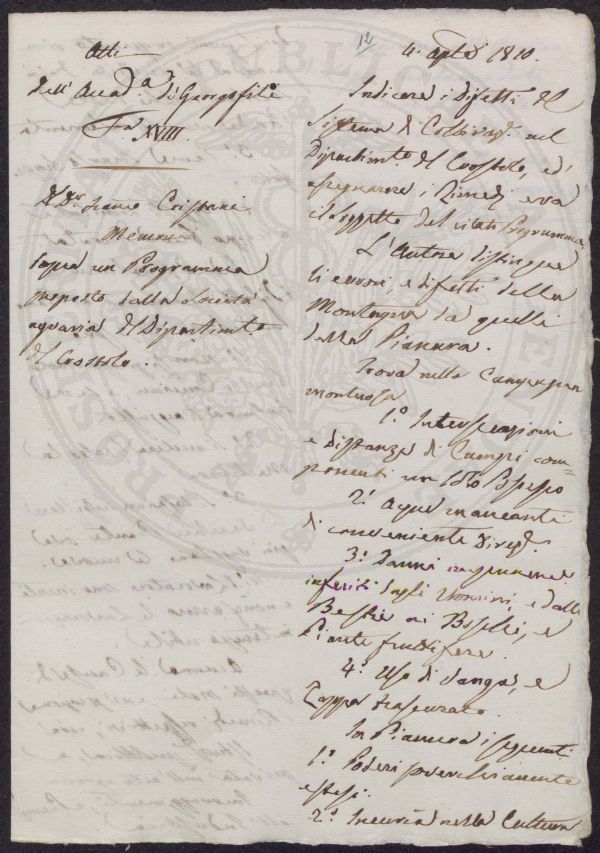 Atti
dell'Accad.a de' Georgofili
XVIII.
Memoria
sopra un Programma
proposto dalla Società
agraria del Dipartim.to
del Crostolo.
12
4. 1810.
Indicare i Difetti del
Sistema di Coltivaz. nel
Dipartim.to del Crostolo, ed
assegnarne i Rimedj era
il soggetto del citato Programma.
L'Autore distingue
li errori, e difetti della
Montagna da quelli
della Pianura.
Trova nella Campagna
montuosa
1.o Intersecazioni
e Distanza di Campi com=
ponenti un solo Possesso
2.o Aque mancanti
di conveniente Direz.
3.o Danni
inferiti dagli Uomini, e dalle
Bestie ai Boschi, e
Piante fruttifere.
4.o Uso di Vanga, e
Zappa trascurato.
In Pianura i seguenti
1.o Poderi soverchiamente
estesi.
2.o Incuria nella Cultura